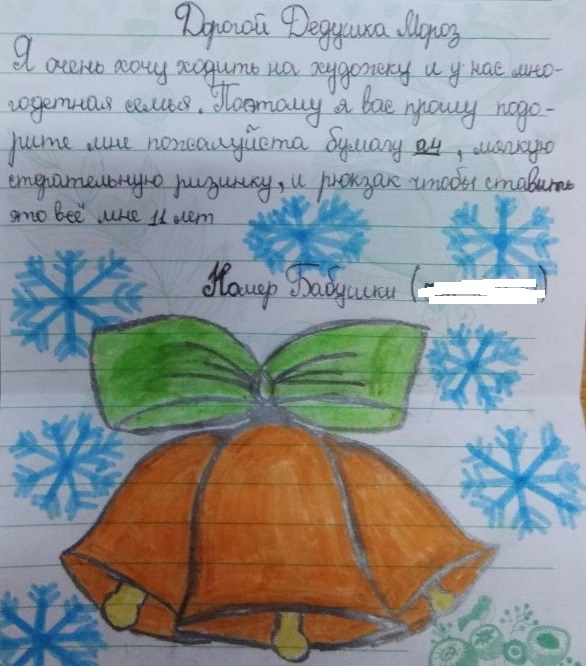 Дорогой Дедушка Мороз
Я очень хочу ходить на художку и у нас мно-
годетная семья. Поэтому я вас прошу подо-
рите мне пожалуйста бумагу а4, мягкую
стерательную ризинку, и рюкзак чтобы ставить
это всё мне 11 лет
Номер Бабушки (
)